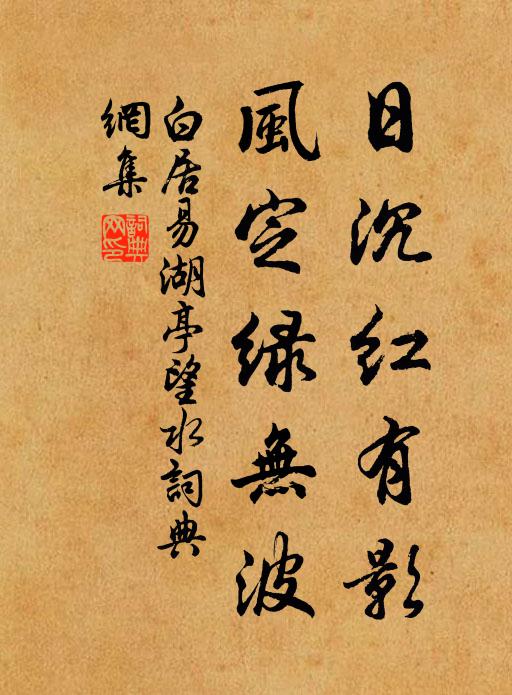 日沉紅有影
風定綠無波
白居易湖亭望水詞典
網集
詞典網印